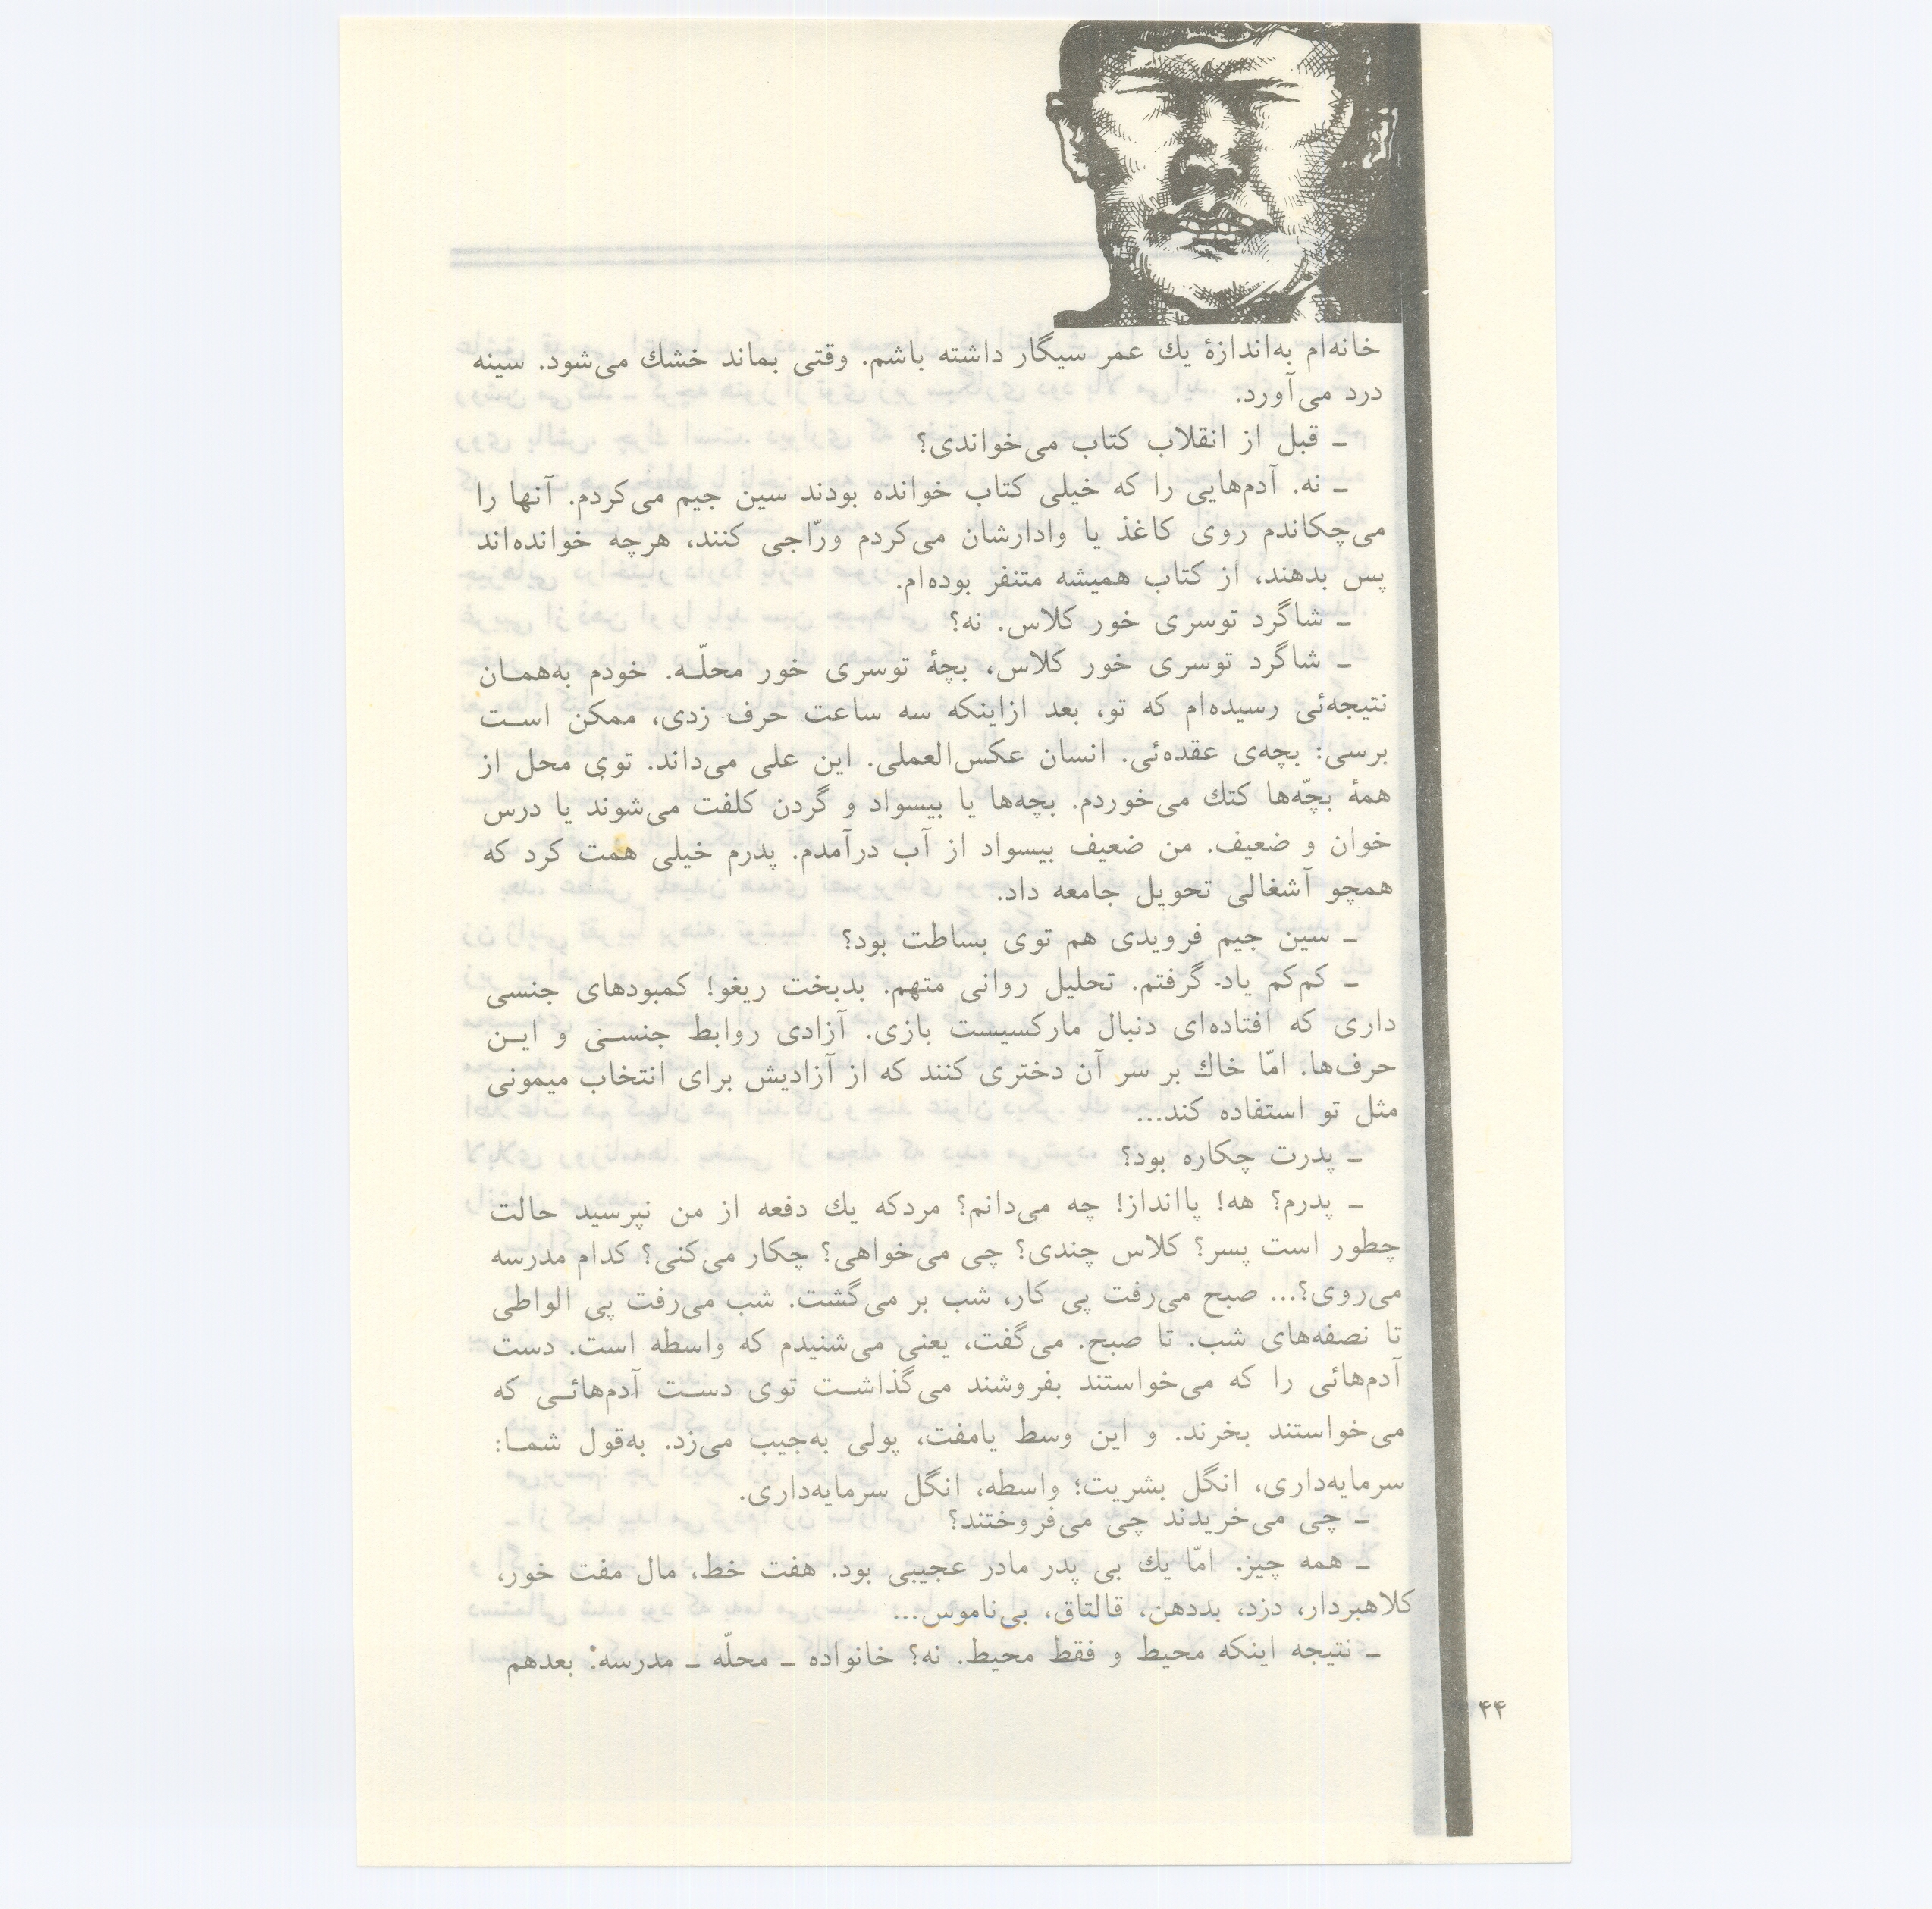 خانه‌ام به‌اندازهٔ یك عمر سیگار داشته باشم. وقتی بماند خشك می‌شود. سینه
درد می‌آورد.
ـ قبل از انقلاب کتاب می‌خواندی؟
ـ نه. آدم‌هایی را که خیلی کتاب خوانده بودند سین جیم می‌کردم. آنها را
می‌چکاندم روی کاغذ یا وادارشان می‌کردم ورّاجی کنند، هرچه خوانده‌اند
پس بدهند، از کتاب همیشه متنفر بوده‌ام.
ـ شاگرد توسری خور کلاس. نه؟
ـ شاگرد توسری خور کلاس، بچهٔ توسری خور محلّـه. خودم به‌همـان
نتیجه‌ئی رسیده‌ام که تو، بعد ازاینکه سه ساعت حرف زدی، ممکن اسـت
برسی: بچه‌ی عقده‌ئی. انسان عکس‌العملی. این علی می‌داند. توی محل از
همهٔ بچّه‌ها کتك می‌خوردم. بچه‌ها یا بیسواد و گردن کلفت می‌شوند یا درس
خوان و ضعیف. من ضعیف بیسواد از آب درآمدم. پدرم خیلی همت کرد که
همچو آشغالی تحویل جامعه داد.
ـ سین جیم فرویدی هم توی بساطت بود؟
ـ کم‌کم یاد گرفتم. تحلیل روانی متهم. بدبخت ریغو! کمبودهای جنسی
داری که افتاده‌ای دنبال مارکسیست بازی. آزادی روابط جنسـی و ایـن
حرف‌ها. امّا خاك بر سر آن دختری کنند که از آزادیش برای انتخاب میمونی
مثل تو استفاده کند...
ـ پدرت چکاره بود؟
ـ پدرم؟ هه! پاانداز! چه می‌دانم؟ مردکه یك دفعه از من نپرسید حالت
چطور است پسر؟ کلاس چندی؟ چی می‌خواهی؟ چکار می‌کنی؟ کدام مدرسه
می‌روی؟... صبح می‌رفت پی کار، شب بر می‌گشت. شب می‌رفت پی الواطی
تا نصفه‌های شب. تا صبح. می‌گفت، یعنی می‌شنیدم که واسطه است. دست
آدم‌هائی را که می‌خواستند بفروشند می‌گذاشـت توی دسـت آدم‌هائـی که
می‌خواستند بخرند. و این وسط یامفت، پولی به‌جیب می‌زد. به‌قول شمـا:
سرمایه‌داری، انگل بشریت؛ واسطه، انگل سرمایه‌داری.
ـ چی می‌خریدند چی می‌فروختند؟
ـ همه چیز. امّا یك بی پدر مادر عجیبی بود. هفت خط، مال مفت خور،
کلاهبردار، دزد، بددهن، قالتاق، بی‌ناموس...
ـ نتیجه اینکه محیط و فقط محیط. نه؟ خانواده ـ محلّه ـ مدرسه: بعدهم
۴۴